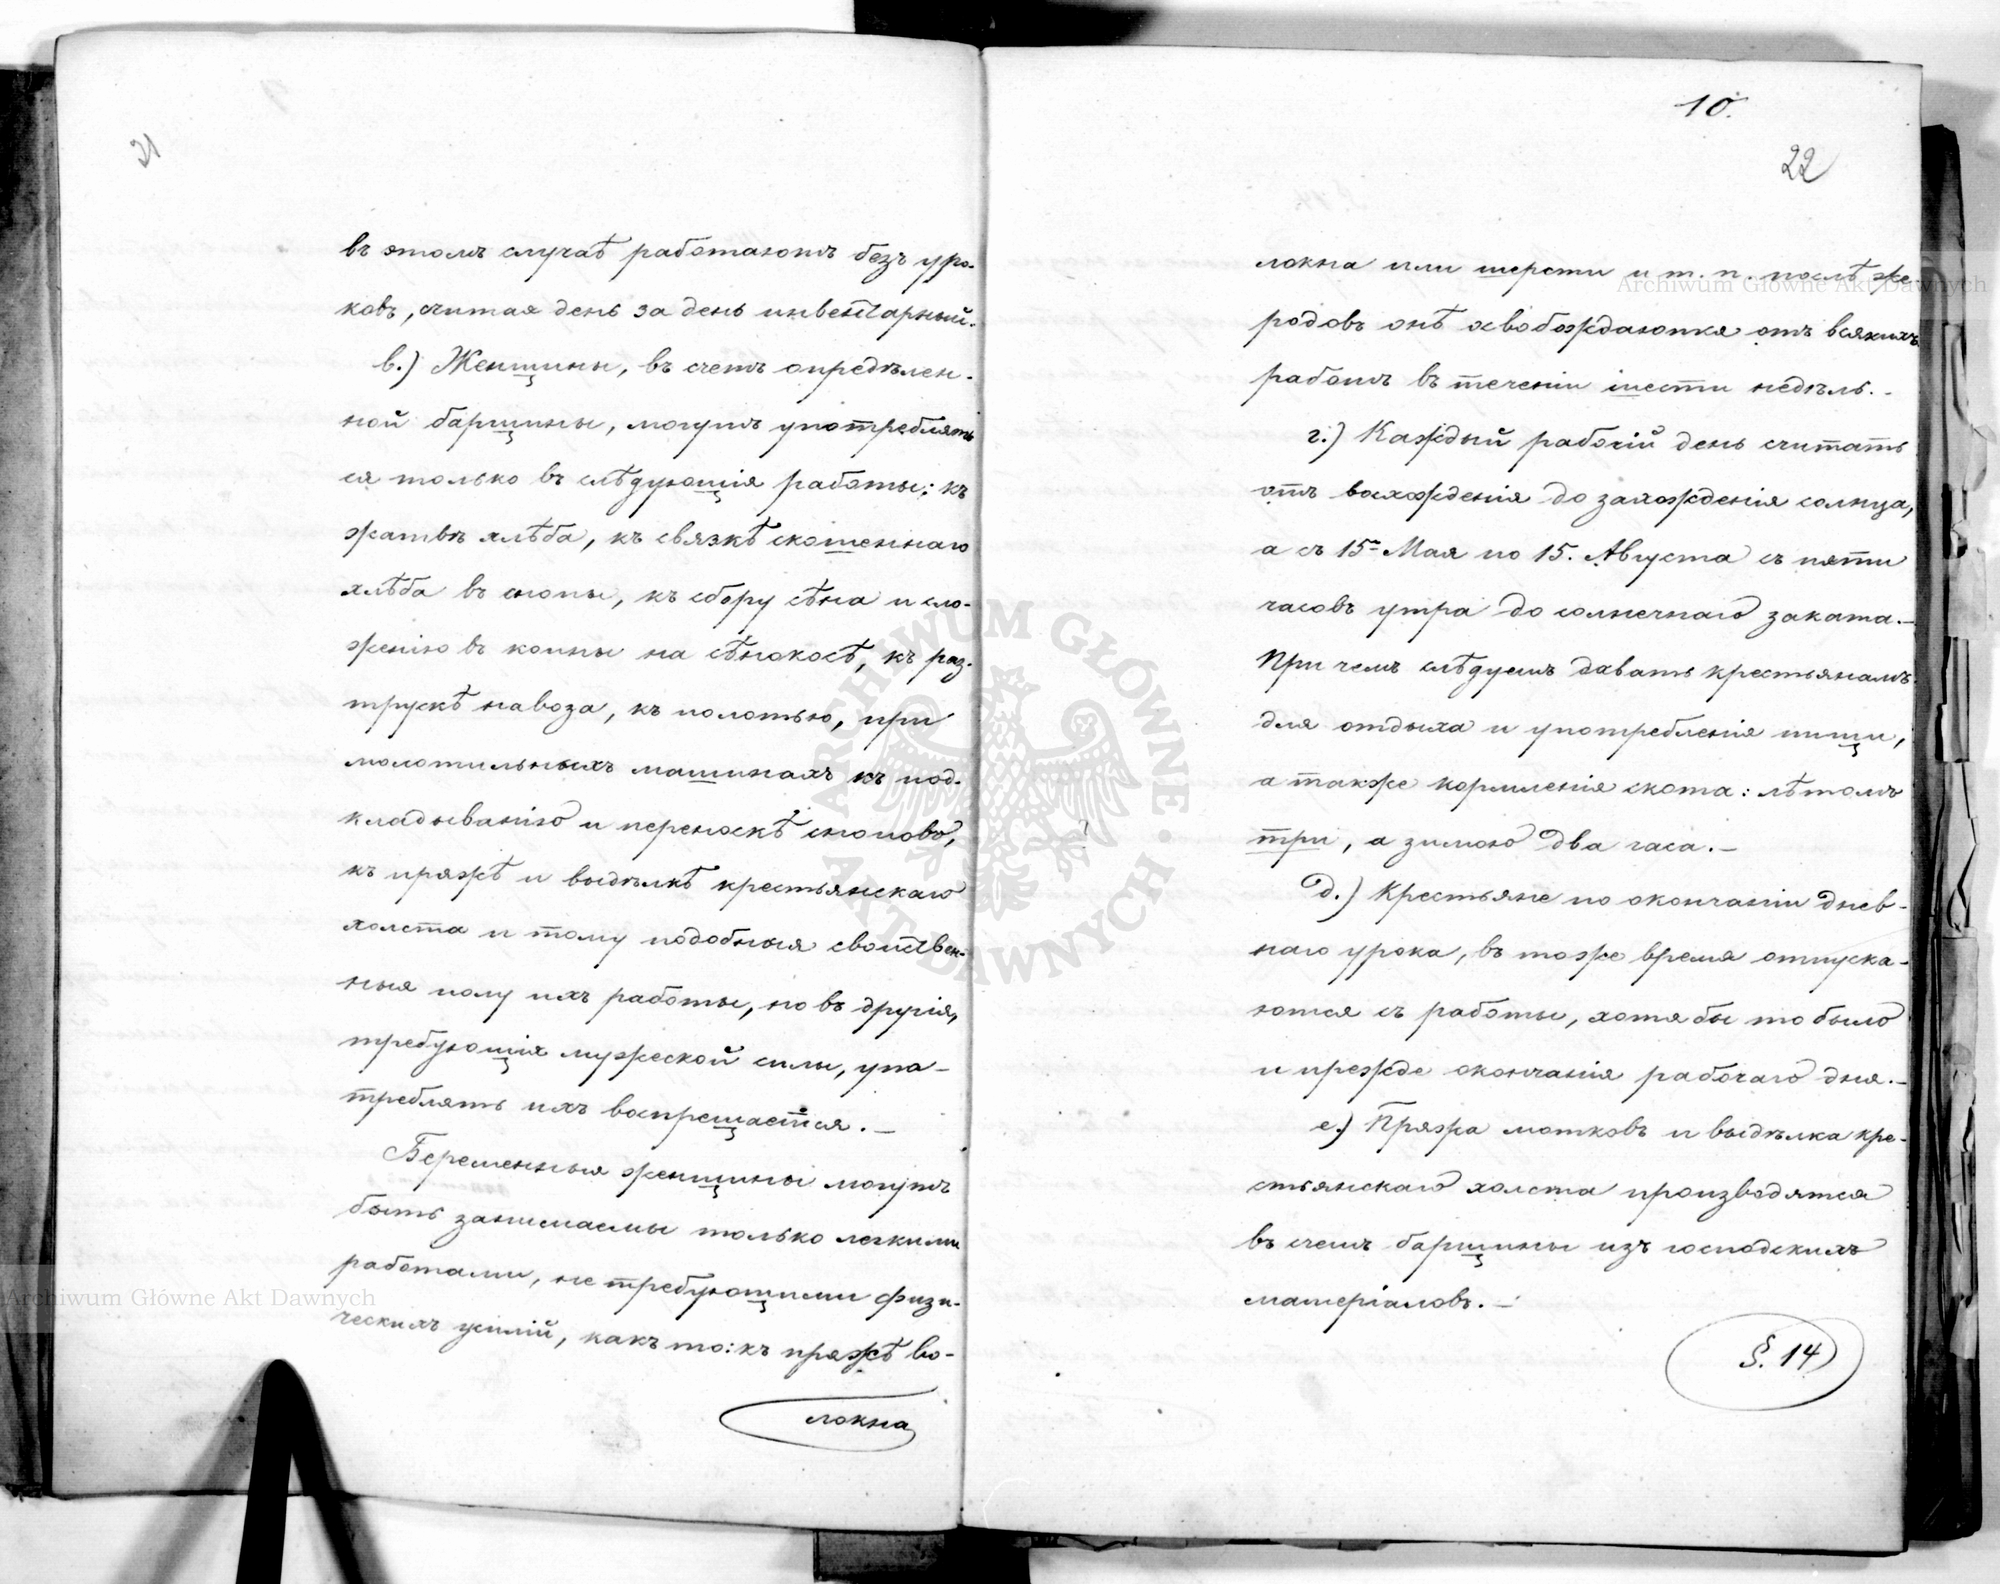 21
въ этомъ случаѣ работаютъ безъ уро-
ковъ, считая день за день инвентарный.
в.) Женщины, въ счетъ опредѣлен-
ной барщины, могутъ употреблять
ся только въ слѣдующія работы: къ
жатвѣ хлѣба, къ связкѣ скошеннаго
хлѣба въ снопы, къ сбору сѣна и сло-
женію въ копны на сѣнокосѣ, къ раз-
трускѣ навоза, къ полотью, при
молотильныхъ машинахъ къ под-
кладыванію и переноскѣ сноповъ,
къ пряжѣ и выдѣлкѣ крестьянскаго
холста и тому подобныя свойствен-
ныя полу ихъ работы, но въ другія,
требующія мужеской силы, упо-
треблять ихъ воспрещается.—
Беременныя женщины могутъ
быть занимаемы только легкими
работами, не требующими физи-
ческихъ усилій, какъ то: къ пряжѣ во-
локна
10.
22
локна или шерсти и т. п. послѣ же
родовъ онѣ освобождаются отъ всякихъ
работъ въ теченіи шести недѣль.-
г.) Каждый рабочій день считать
отъ восхожденія до захожденія солнца,
а съ 15- Мая по 15. Августа съ пяти
часовъ утра до солнечнаго заката.—
При чемъ слѣдуетъ давать крестьянамъ
для отдыха и употребленія пищи,
а также кормленія скота: лѣтомъ
три, а зимою два часа.—
д.) Крестьяне по окончаніи днев-
наго урока, въ тоже время отпуска-
ются съ работы, хотя бы то было
и прежде окончанія рабочаго дня.—
е.) Пряжа мотковъ и выдѣлка кре-
стьянскаго холста производятся
въ счетъ барщины изъ господскихъ
матеріаловъ.—
§. 14
Archiwum Główne Akt Dawnych
Archiwum Główne Akt Dawnych
ARCHIWUM GŁÓWNE · AKT DAWNYCH ·